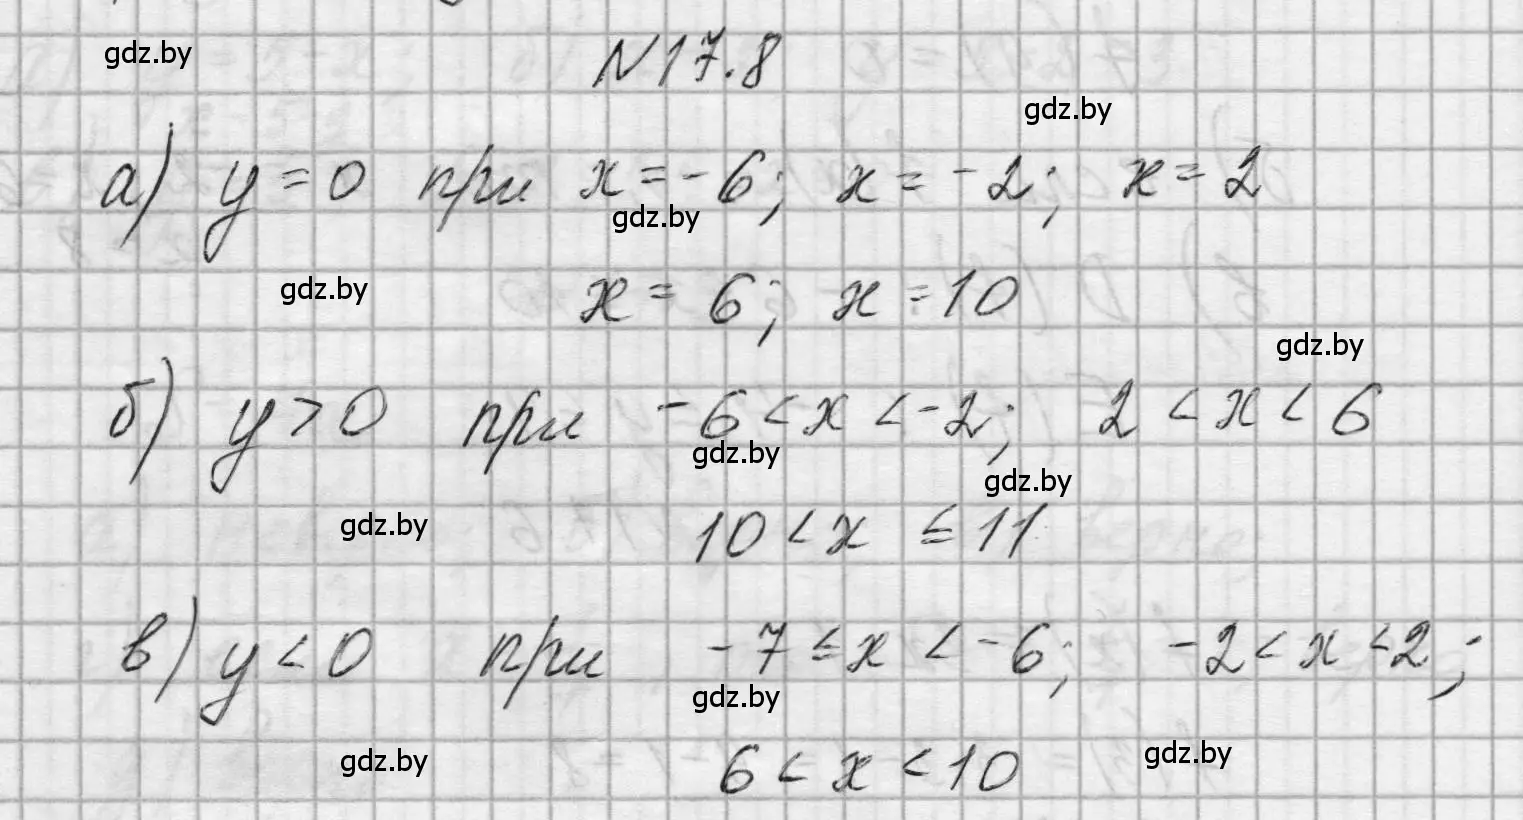 gdz.by
N17.8
gdz.by
а) y = 0 при x = -6; x = -2; x = 2
gdz.by
gdz.by
x = 6; x = 10
gdz.by
б) y > 0 при -6 < x < -2; 2 < x < 6
gdz.by
gdz.by
gdz.by
10 < x ≤ 11
в) y < 0 при -7 ≤ x < -6; -2 < x < 2;
gdz.by
gdz.by
6 < x < 10
gdz.by